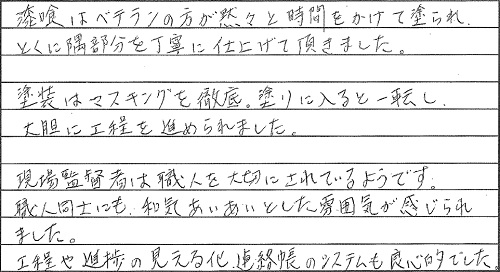 漆喰はベテランの方が黙々と時間をかけて塗られ、
とくに隅部分を丁寧に仕上げて頂きました。
塗装はマスキングを徹底。塗りに入ると一転し、
大胆に工程を進められました。
現場監督者は職人を大切にされているようです。
職人同士にも、和気あいあいとした雰囲気が感じられ
ました。
工程や進捗の見える化、連絡帳のシステムも良心的でした